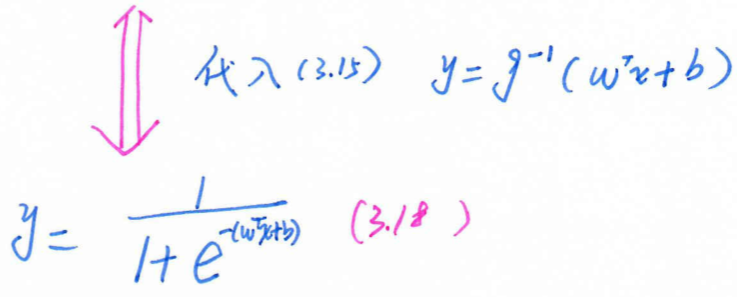 代入(3.15) y=g⁻¹(wᵀx+b)
y= 1/(1+e^-(wᵀx+b)) (3.18)